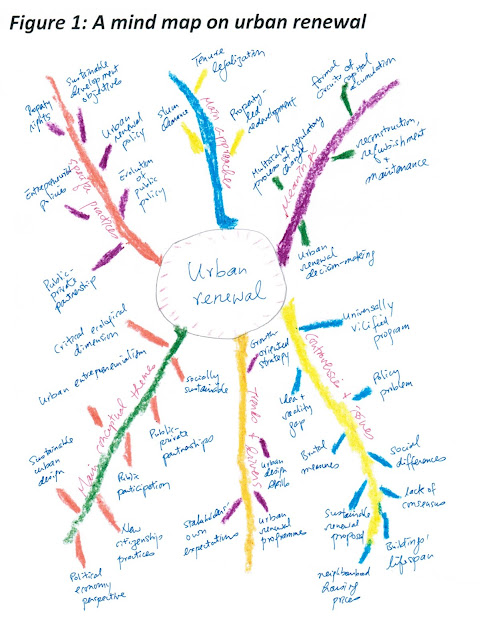 Figure 1: A mind map on urban renewal
Urban
renewal
Specific practices
Sustainable
development
objectives
Property
rights
Urban
renewal
policy
Entrepreneurial
policies
Evaluation
of public
policy
Public-
private
partnership
Main approaches
Tenure
legalization
Slum
clearance
Property-
led redevelopment
Meanings
Formal
circuits of
capital
accumulation
Multiscalar
process of regulatory
change
reconstruction,
refurbishment
+
maintenance
Urban
renewal
decision-making
Main conceptual themes
Critical ecological
dimension
Urban entrepreneurialism
socially
sustainable
Sustainable
urban
design
Public-
private
partnerships
Public
participation
New
citizenship
practices
Political
economy
perspective
Trends +
Growth
oriented
strategy
Urban
design
skill
stakeholders'
own
expectations
Urban
renewal
programme
Controversies + issues
Universally
vilified
program
Idea +
reality
gap
Policy
problem
Brutal
measures
Social
differences
Sustainable
renewal
proposal
lack of
consensus
Buildings'
lifespan
neighbourhood
housing
prices